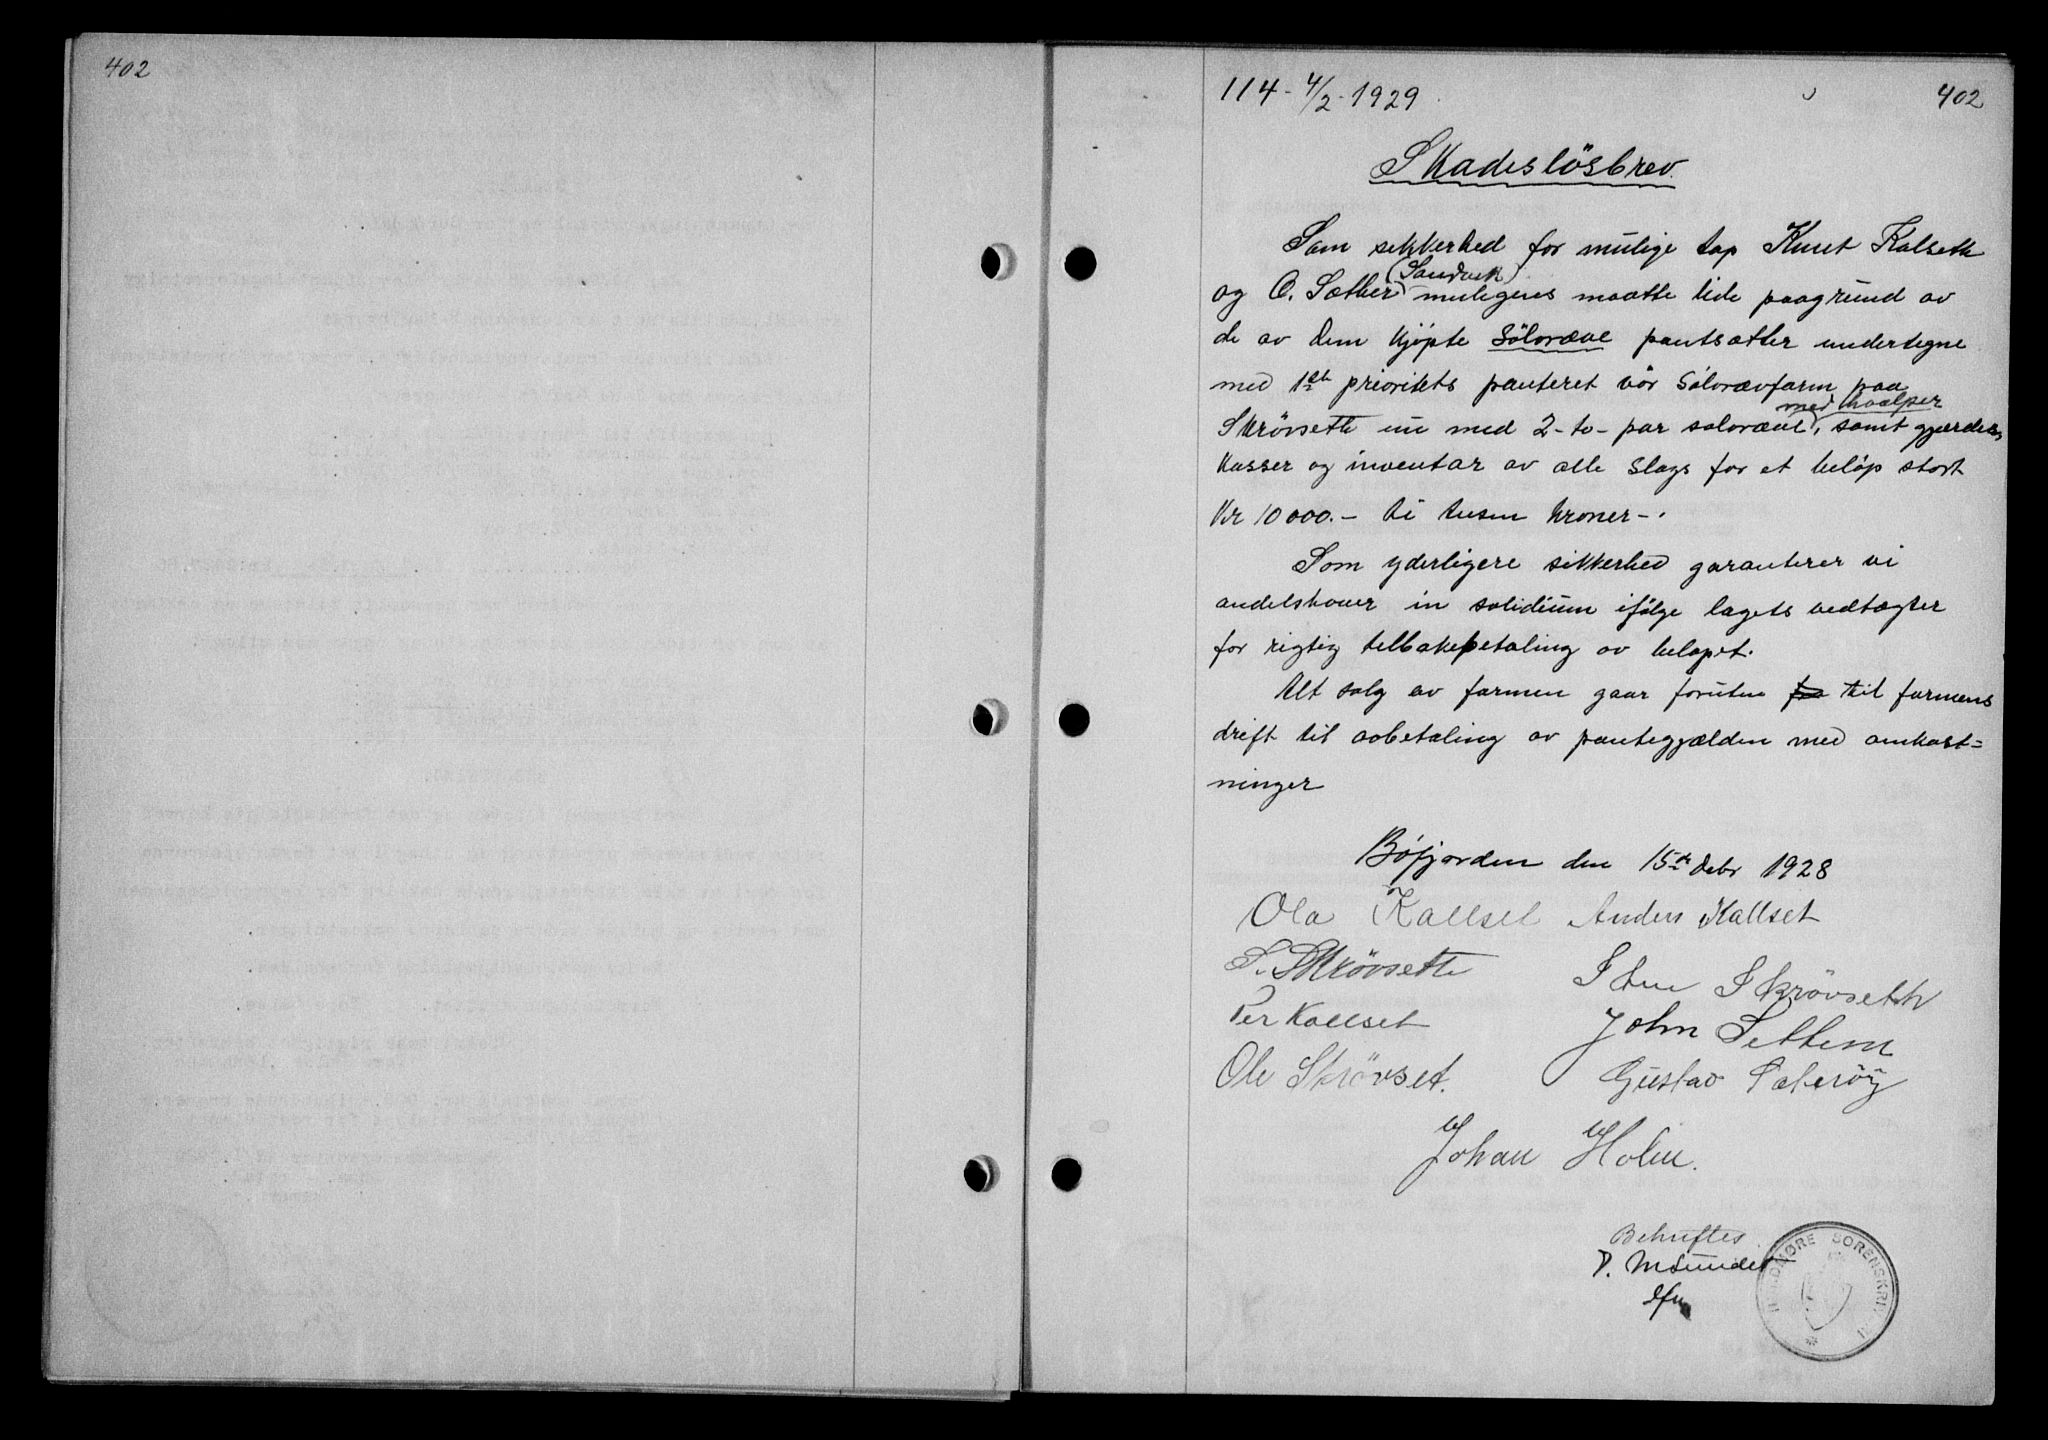 402
114 - 4/2 - 1929
402
Skadeslösbrev.
Som sikkerhed for mulige tap Knut Kalseth
og O. Sæther (Sandvik) muligens maatte lide paagrund av
de av dem kjøpte Sölvræve pantsætter undertegne
med 1ste prioritets panteret vor Sölvrævfarm paa
Skrövseth nu med 2-to-par sølvræve, med hvalper samt gjærder,
kasser og inventar av alle slags for et beløp stort
Kr 10000.- ti tusen kroner-.
Som yderligere sikkerhed garanterer vi
andelshaver in solidium ifølge lagets vedtægter
for rigtig tilbakebetaling av beløpet.
Alt salg av farmen gaar foruten til farmens
drift til avbetaling av pantegjælden med omkost=
ninger
Bøfjorden den 15de Debr 1928
Ola Kallset Anders Kallset
S. Skrövseth
Sten Skrövseth
Per Kallset
John Settem
Ole Skrövset.
Gustav Sæterøy
Johan Holm.
Bekræftes
NORDMØRE SORENSKRIVERI